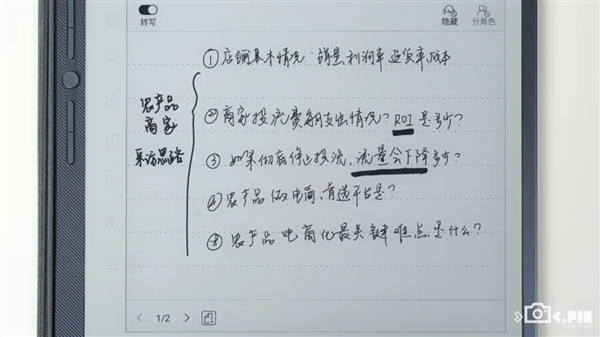 转写
隐藏
分角色
农产品
商家
采访思路
①店铺基本情况:销量,利润率,退货率,成本
②商家投流费用支出情况?ROI是多少?
③如果彻底停止投流,流量会下降多少?
④农产品做电商,首选平台是?
⑤农产品电商化最关键难点是什么?
1/2
C.PIN